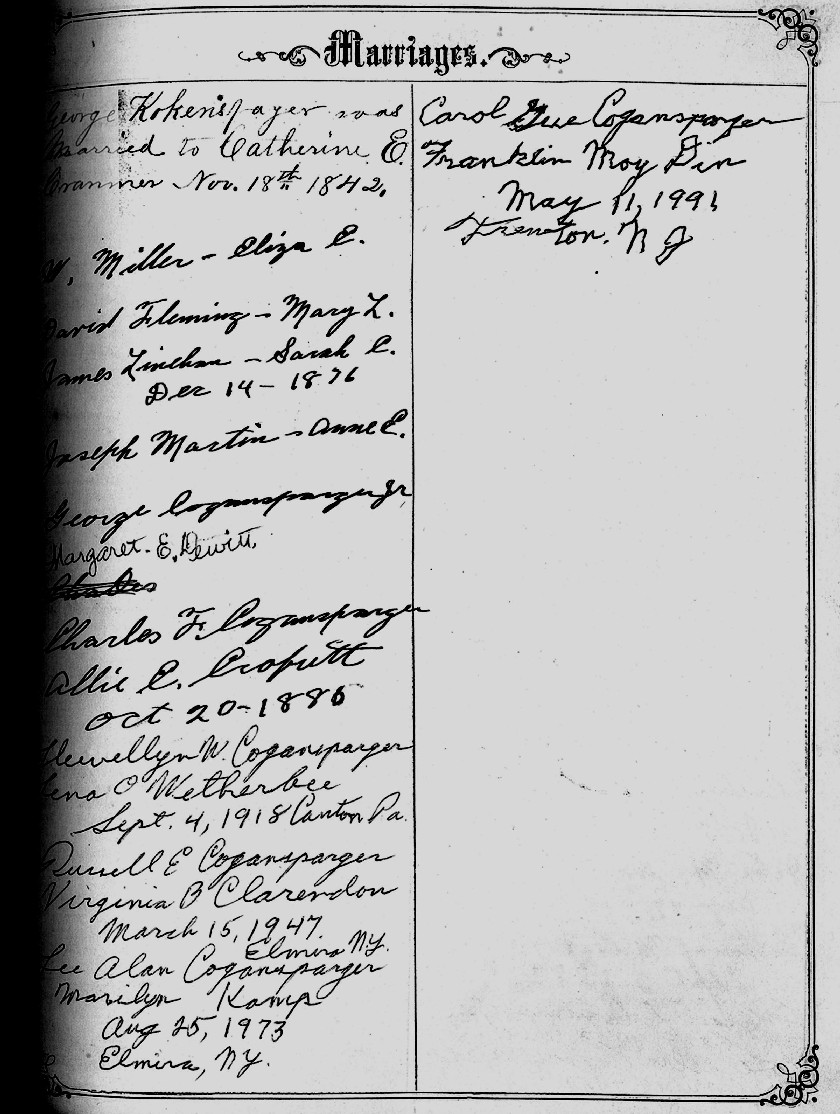 Marriages.
George Kokenspager was
Married to Catherine E.
Cranmer Nov. 18th 1842.
W. Miller - Eliza C.
David Fleming - Mary L.
James Linehan - Sarah C.
Dec 14 - 1876
Joseph Martin - Anne E.
George Cogansparger Jr
Margaret. E. Dewitt
Charles F. Cogansparger
Allie C.
Oct 20 - 1886
Llewellyn W. Cogansparger
Lena O Wetherbee
Sept. 4, 1918 Canton Pa.
Russell E Cogansparger
Virginia B Clarendon
March 15, 1947
Elmira N.Y.
Lee Alan Cogansparger
Marilyn Kamp
Aug 25, 1973
Elmira, NY.
Carol Sue Cogansparger
Franklin Moy Din
May 11, 1991
Trenton. N J